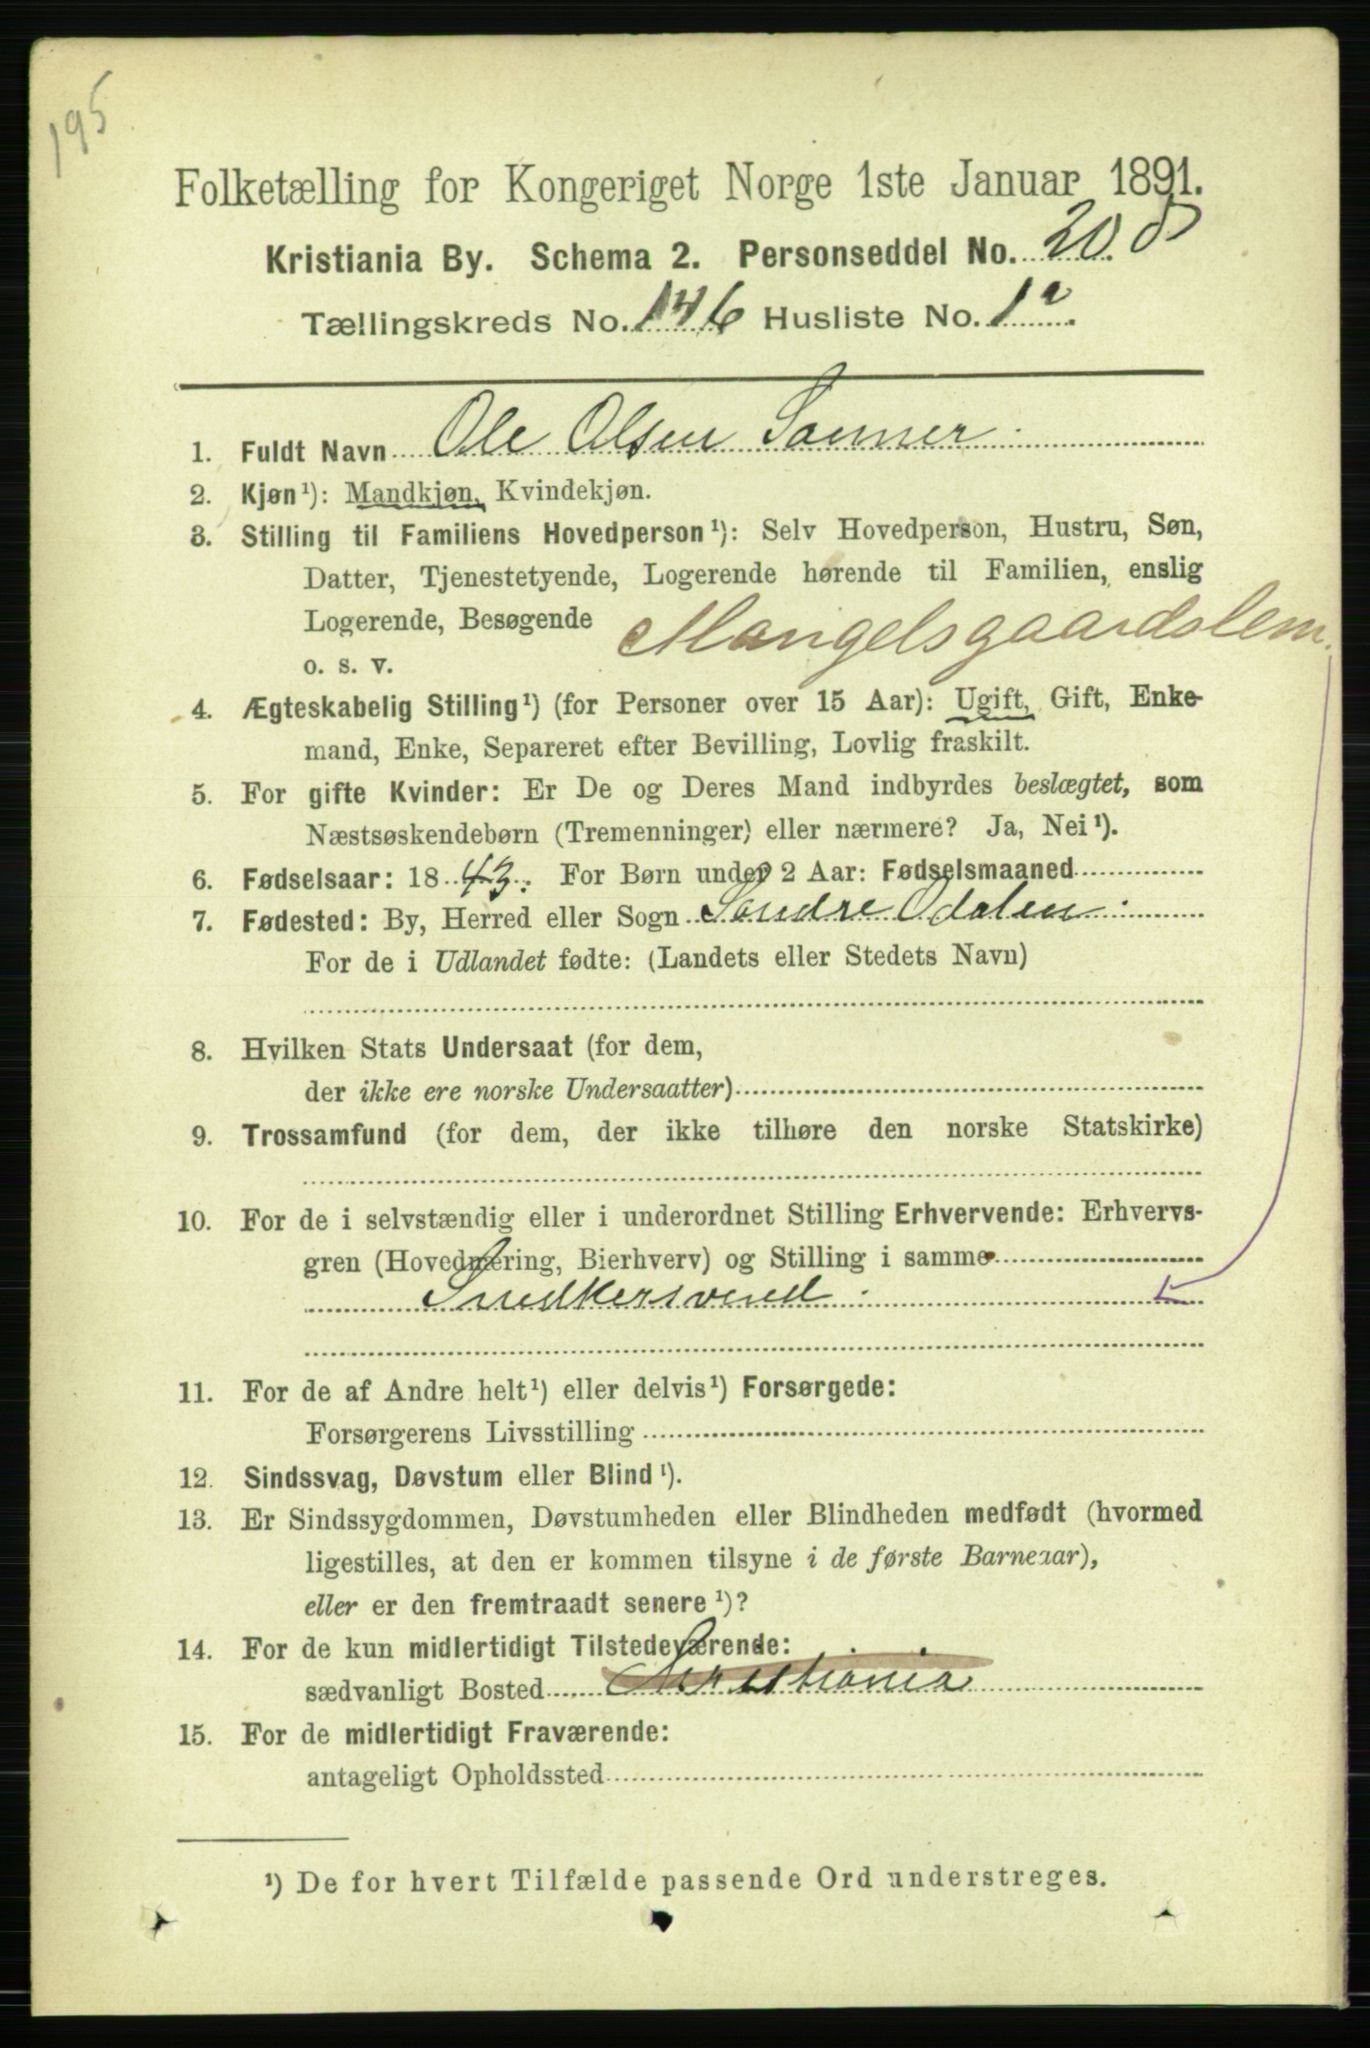 195
Folketælling for Kongeriget Norge 1ste Januar 1891.
Kristiania By. Schema 2. Personseddel No. 208
Tællingskreds No. 146 Husliste No. 1a
1. Fuldt Navn Ole Olsen Sanner
2. Kjøn¹): Mandkjøn, Kvindekjøn.
3. Stilling til Familiens Hovedperson¹): Selv Hovedperson, Hustru, Søn,
Datter, Tjenestetyende, Logerende hørende til Familien, enslig
Logerende, Besøgende Mangelsgaardslem.
o. s. v.
4. Ægteskabelig Stilling¹) (for Personer over 15 Aar): Ugift, Gift, Enke-
mand, Enke, Separeret efter Bevilling, Lovlig fraskilt.
5. For gifte Kvinder: Er De og Deres Mand indbyrdes beslægtet, som
Næstsøskendebørn (Tremenninger) eller nærmere? Ja, Nei¹).
6. Fødselsaar: 1843. For Børn under 2 Aar: Fødselsmaaned
7. Fødested: By, Herred eller Sogn Søndre Odalen
For de i Udlandet fødte: (Landets eller Stedets Navn)
8. Hvilken Stats Undersaat (for dem,
der ikke ere norske Undersaatter)
9. Trossamfund (for dem, der ikke tilhøre den norske Statskirke)
10. For de i selvstændig eller i underordnet Stilling Erhvervende: Erhvervs-
gren (Hovednæring, Bierhverv) og Stilling i samme
Snedkersvend
11. For de af Andre helt¹) eller delvis¹) Forsørgede:
Forsørgerens Livsstilling
12. Sindssvag, Døvstum eller Blind¹).
13. Er Sindssygdommen, Døvstumheden eller Blindheden medfødt (hvormed
ligestilles, at den er kommen tilsyne i de første Barneaar),
eller er den fremtraadt senere¹)?
14. For de kun midlertidigt Tilstedeværende:
sædvanligt Bosted Kristiania
15. For de midlertidigt Fraværende:
antageligt Opholdssted
¹) De for hvert Tilfælde passende Ord understreges.